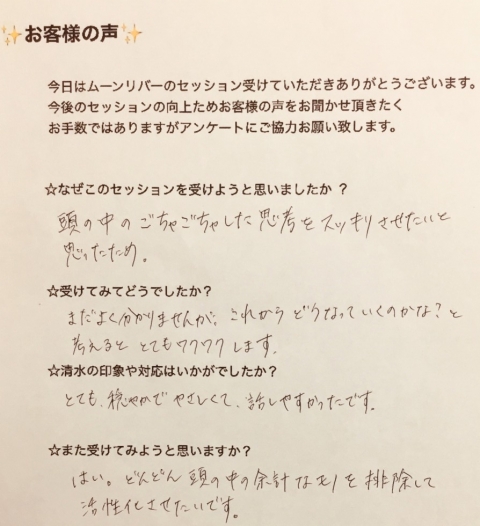 ✨お客様の声✨
今日はムーンリバーのセッション受けていただきありがとうございます。
今後のセッションの向上ためお客様の声をお聞かせ頂きたく
お手数ではありますがアンケートにご協力お願い致します。
☆なぜこのセッションを受けようと思いましたか ？
頭の中のごちゃごちゃした思考をスッキリさせたいと
思ったため。
☆受けてみてどうでしたか？
まだよく分かりませんが、これからどうなっていくのかな？と
考えるととてもワクワクします。
☆清水の印象や対応はいかがでしたか？
とても、穏やかでやさしくて、話しやすかったです。
☆また受けてみようと思いますか？
はい。どんどん頭の中の余計なモノを排除して
活性化させたいです。